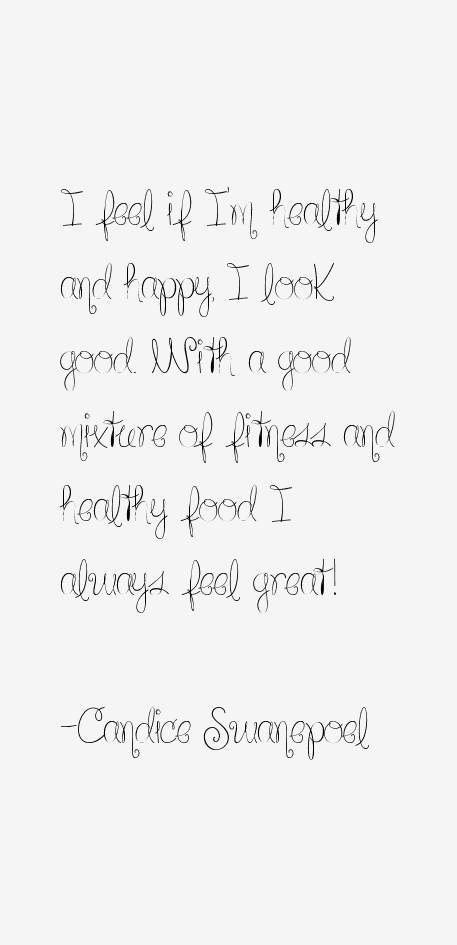 I feel if I'm healthy
and happy, I look
good. With a good
mixture of fitness and
healthy food I
always feel great!
-Candice Swanepoel